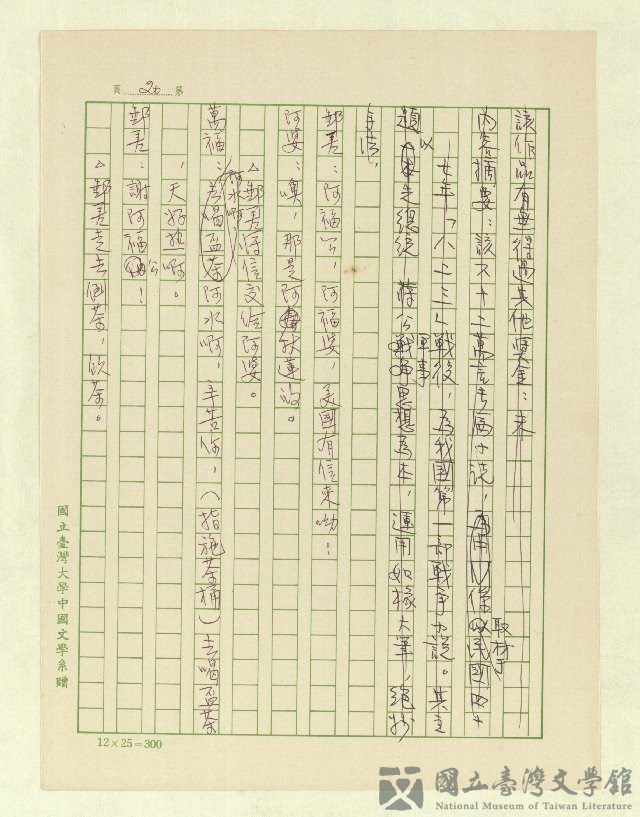 第 20 頁
該作品有無得過其他獎金：未
內容摘要：該六十二萬言長篇小說，係取材于民國四十
七年「八二三」戰後，為我國第一部戰爭小說。其主
題以先總統 蔣公軍事思想為本，運用如椽大筆，絕妙
郵差：阿福公，阿福婆，美國有信來呦！
阿婆：噢，那是阿秋蓮的。
△郵差將信交給阿婆。
萬福：阿水啊，辛苦你，（指施茶桶）去喝盃茶
，天好熱啊。
郵差：謝阿福公！
△郵差走去倒茶，飲茶。
國立臺灣大學中國文學系贈
12×25=300
國立臺灣文學館
National Museum of Taiwan Literature